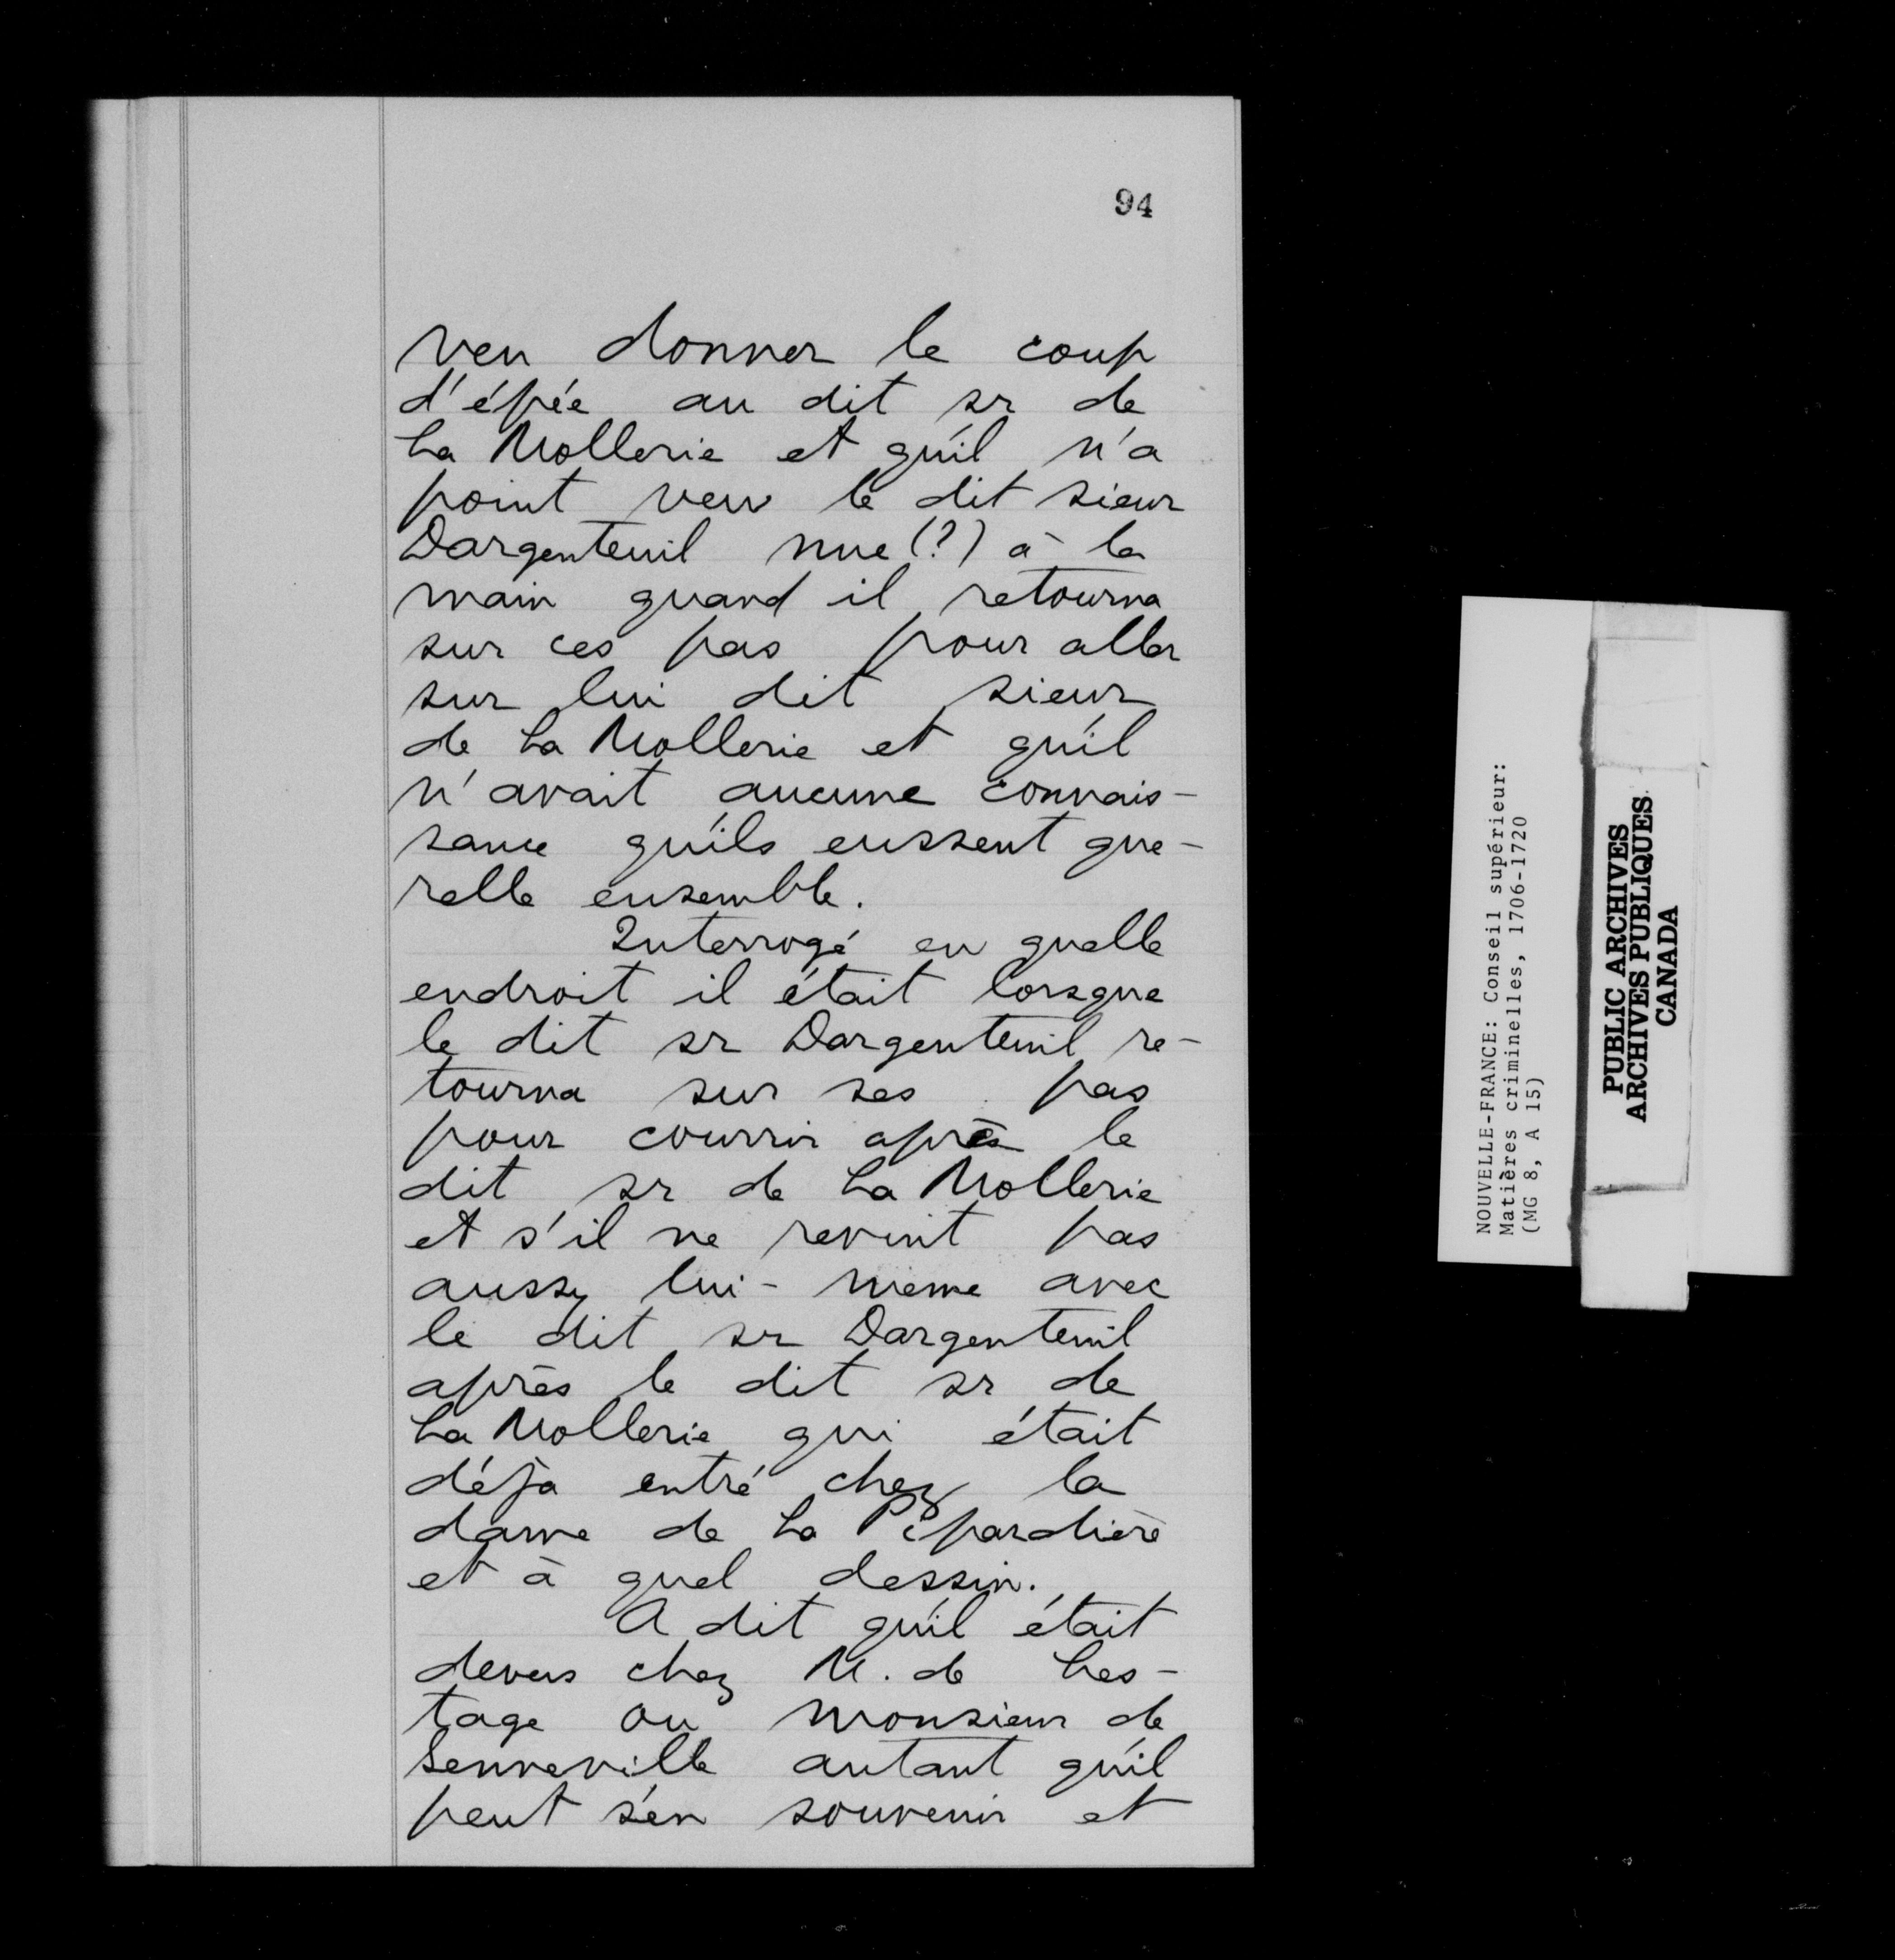 94
veu donner le coup
d'épée au dit sr de
La Mollerie et qu'il n'a
point veu le dit sieur
Dargenteuil nue (?) à la
main quand il retourna
sur ces pas pour aller
sur lui dit sieur
de La Mollerie et qu'il
n'avait aucune connais-
sance qu'ils eussent que-
relle ensemble.
Interrogé en quelle
endroit il était lorsque
le dit sr Dargenteuil re-
tourna sur ses pas
pour courrir après le
dit sr de La Mollerie
et s'il ne revint pas
aussy lui-même avec
le dit sr Dargenteuil
après le dit sr de
La Mollerie qui était
déja entré chez la
dame de La Pipardière
et à quel dessin.
A dit qu'il était
devers chez M. de Les-
tage ou monsieur de
Senneville autant qu'il
peut s'en souvenir et
NOUVELLE-FRANCE: Conseil supérieur:
Matières criminelles, 1706-1720
(MG 8, A 15)
PUBLIC ARCHIVES
ARCHIVES PUBLIQUES
CANADA